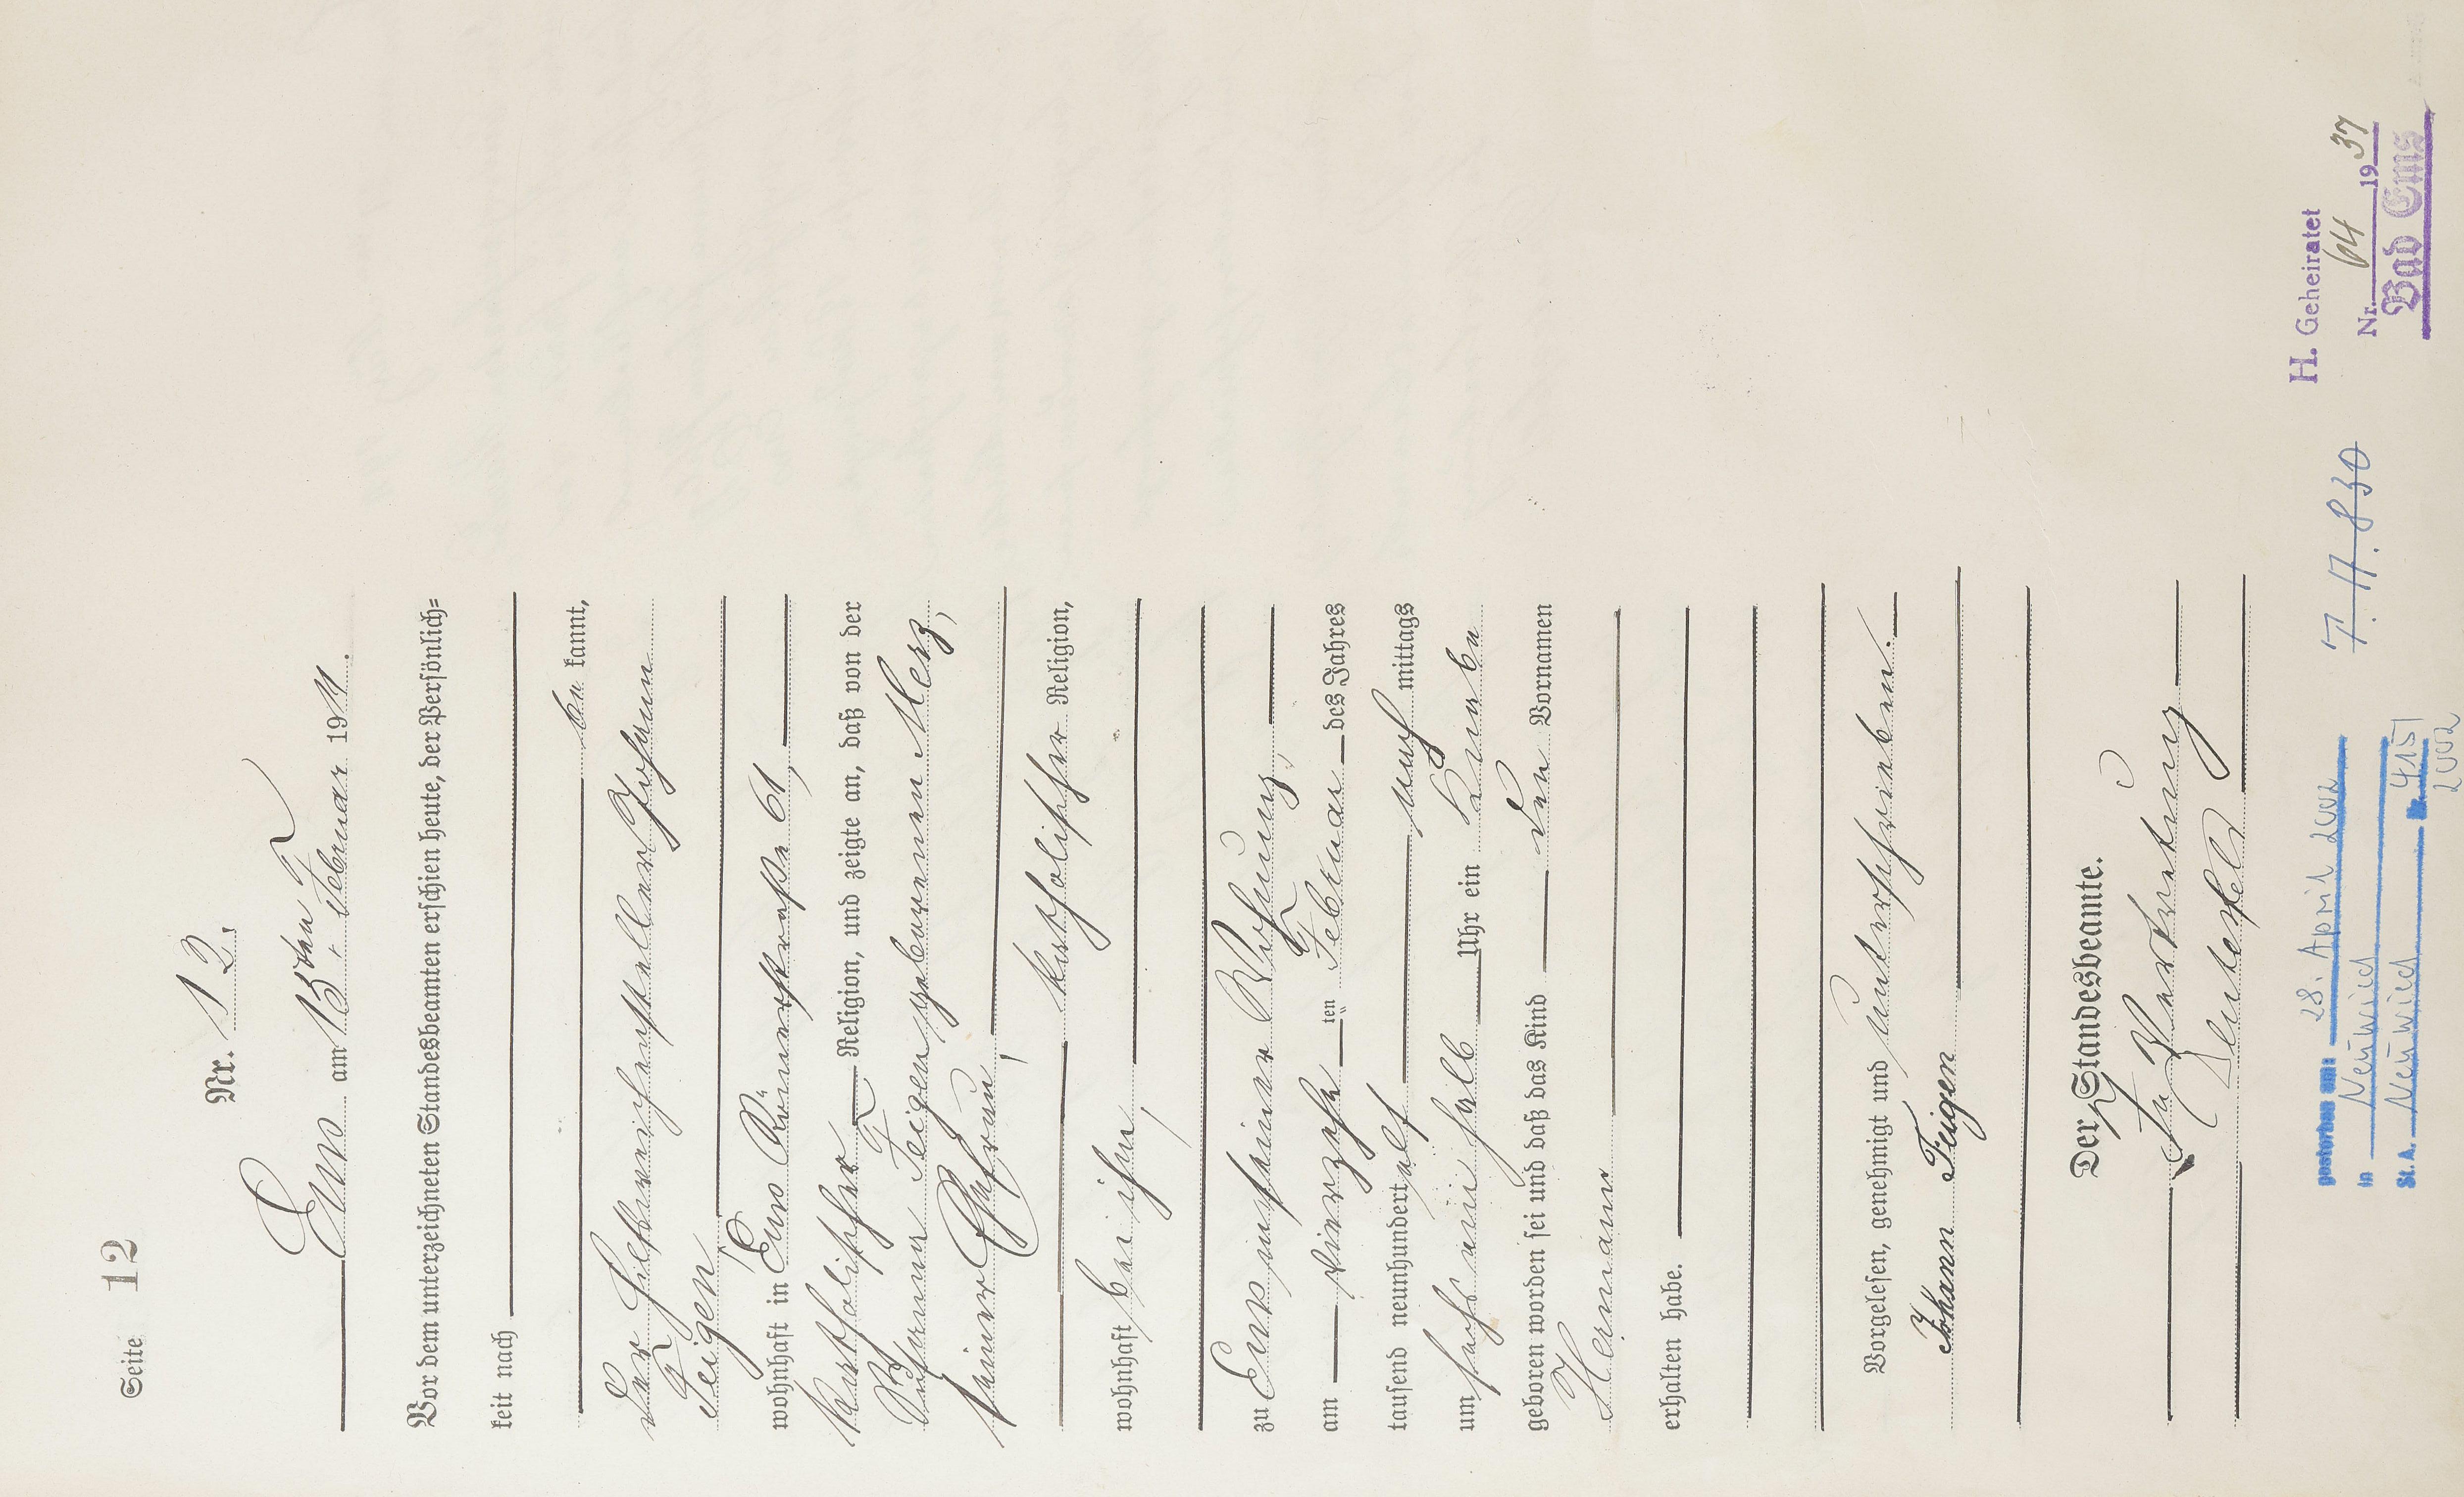 Seite 12
Nr. 12.
Ems am 15ten Februar 1911.
Vor dem unterzeichneten Standesbeamten erschien heute, der Persönlich=
keit nach
be kannt,
der Hilfsweichensteller Johann
Feigen,
wohnhaft in Ems Römerstraße 61,
katholischer Religion, und zeigte an, daß von der
Feigen geborenen Merz,
seiner Ehefrau,
katholischer Religion,
wohnhaft bei ihm,
zu Ems in seiner Wohnung,
am vierzehn ten Februar des Jahres
tausend neunhundert elf nach mittags
um sechs ein halb Uhr ein Knabe
geboren worden sei und daß das Kind den Vornamen
Hermann
erhalten habe.
Vorgelesen, genehmigt und unterschrieben.
Johann Feigen
Der Standesbeamte.
In Vertretung
gestorben am: 28. April 2002
in Neuwied
St. A. Neuwied Nr. 415/
2002
T. 17. 830
H. Geheiratet
Nr. 64 1937
Bad Ems